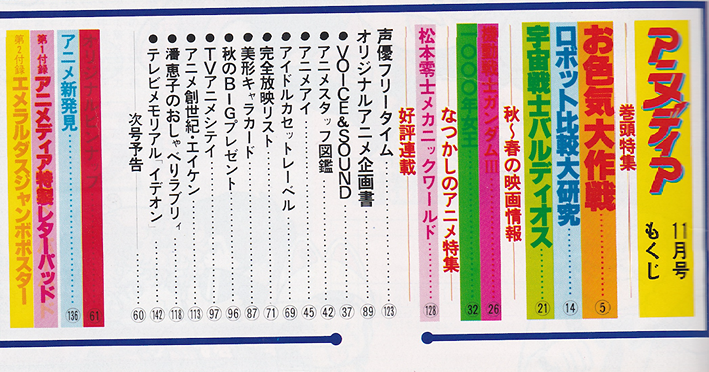 アニメディア
11月号
もくじ
巻頭特集
お色気大作戦……⑤
ロボット比較大研究……⑭
宇宙戦士バルディオス……㉑
秋〜春の映画情報
機動戦士ガンダムIII……26
一〇〇〇年女王……32
なつかしのアニメ特集
松本零士メカニックワールド……128
好評連載
声優フリータイム……123
オリジナルアニメ企画書……89
●VOICE&SOUND……37
●アニメスタッフ図鑑……42
●アニメアイ……45
●アイドルカセットレーベル……69
●完全放映リスト……71
●美形キャラカード……87
●秋のBIGプレゼント……96
●TVアニメシティ……97
●アニメ創世紀・エイケン……113
●潘恵子のおしゃべりラブリィ……118
●テレビメモリアル「イデオン」……142
次号予告……60
61
アニメ新発見……136
第1付録 アニメディア特製レターパッド
第2付録 エメラルダスジャンボポスター